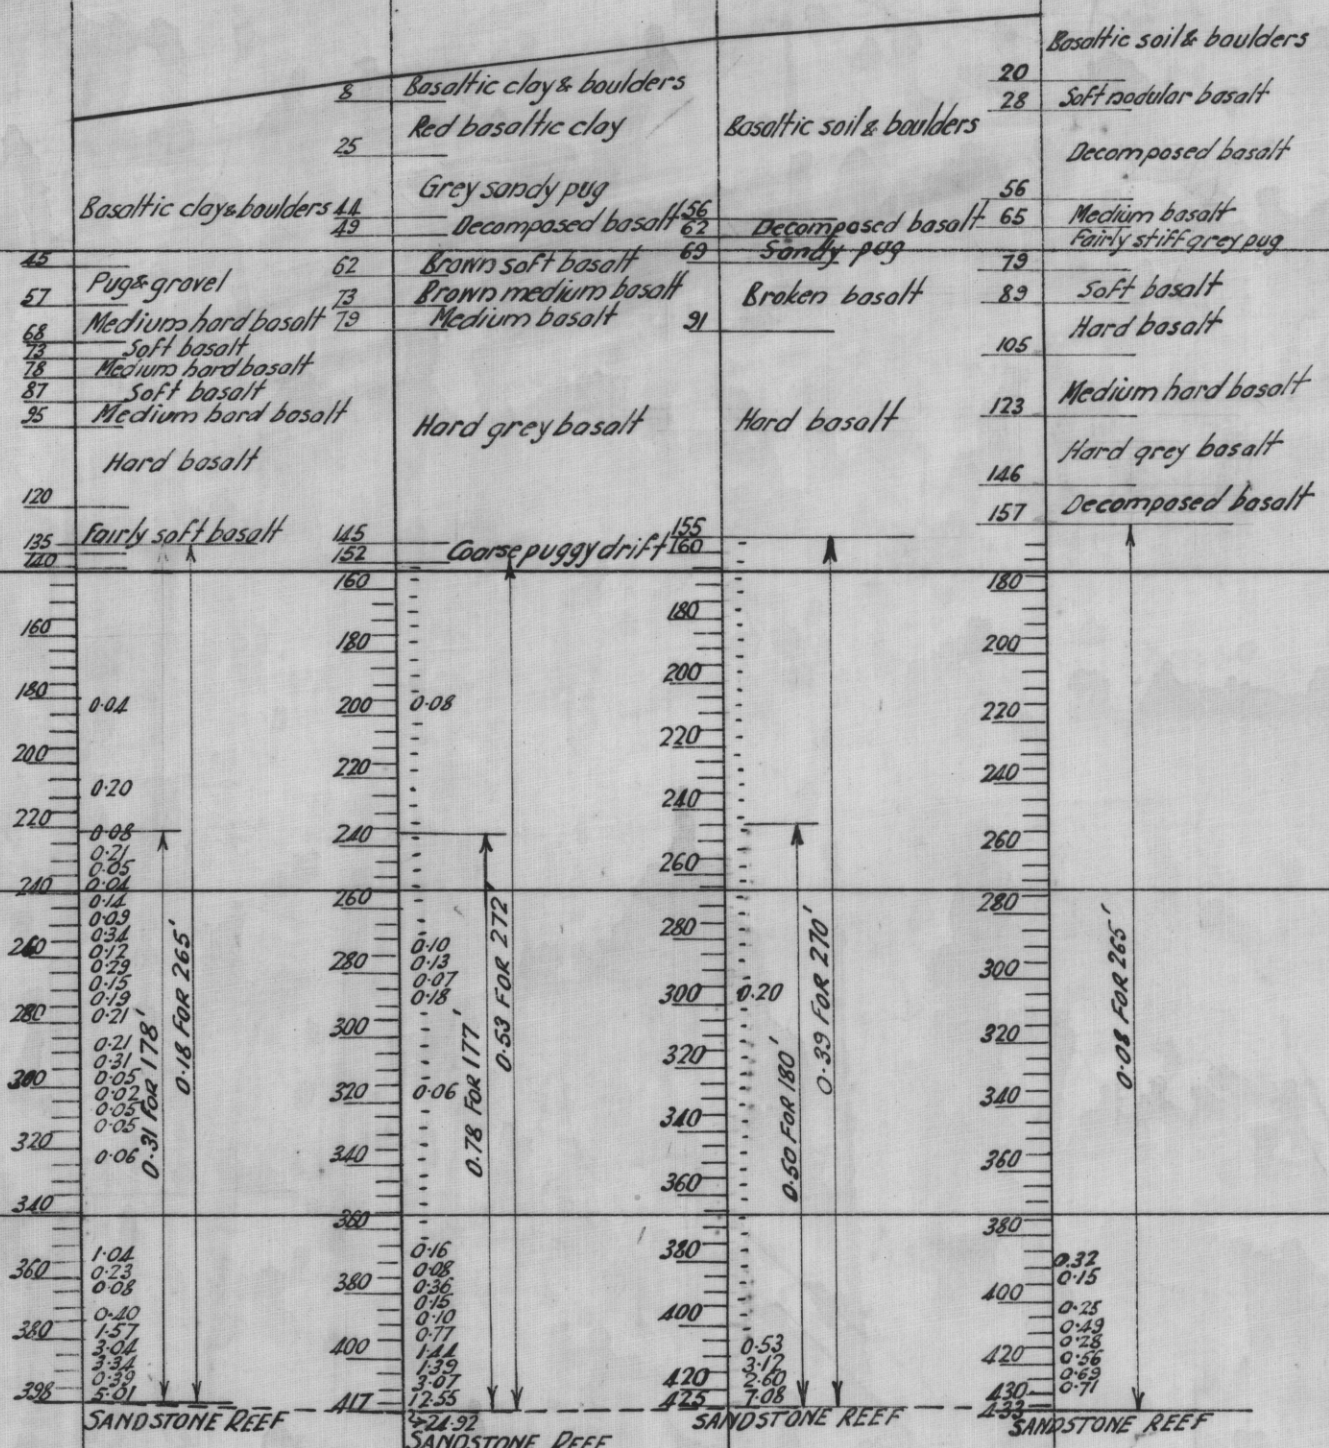 Basaltic clay & boulders
45
Pug & gravel
57
Medium hard basalt
68
Soft basalt
73
Medium hard basalt
78
Soft basalt
87
Medium hard basalt
95
Hard basalt
120
Fairly soft basalt
135
140
160
180
0·04
200
0·20
220
0·08
0·21
0·05
0·04
240
0·14
0·09
0·34
0·12
260
0·29
0·15
0·19
0·21
280
0·21
0·31
0·05
300
0·02
0·05
0·05
320
0·06
340
1·04
0·23
360
0·08
0·40
1·57
380
3·04
3·34
0·39
5·01
398
0·31 FOR 178'
0·18 FOR 265'
SANDSTONE REEF
8
Basaltic clay & boulders
Red basaltic clay
25
Grey sandy pug
44
Decomposed basalt
49
Brown soft basalt
62
Brown medium basalt
73
Medium basalt
79
Hard grey basalt
145
Coarse puggy drift
152
160
180
200
0·08
220
240
260
0·10
0·13
280
0·07
0·18
300
320
0·06
340
360
0·16
0·08
380
0·36
0·15
0·10
0·77
400
1·44
1·39
3·07
12·55
417
24·92
0·78 FOR 177'
0·53 FOR 272'
SANDSTONE REEF
Basaltic soil & boulders
56
Decomposed basalt
62
Sandy pug
69
Broken basalt
91
Hard basalt
155
160
180
200
220
240
260
280
300
0·20
320
340
360
380
400
0·53
3·12
420
2·60
425
7·08
0·50 FOR 180'
0·39 FOR 270'
SANDSTONE REEF
Basaltic soil & boulders
20
Soft nodular basalt
28
Decomposed basalt
56
Medium basalt
65
Fairly stiff grey pug
79
Soft basalt
89
Hard basalt
105
Medium hard basalt
123
Hard grey basalt
146
Decomposed basalt
157
180
200
220
240
260
280
300
320
340
360
380
0·32
0·15
400
0·25
0·49
0·28
420
0·56
0·69
0·71
430
433
0·08 FOR 265'
SANDSTONE REEF